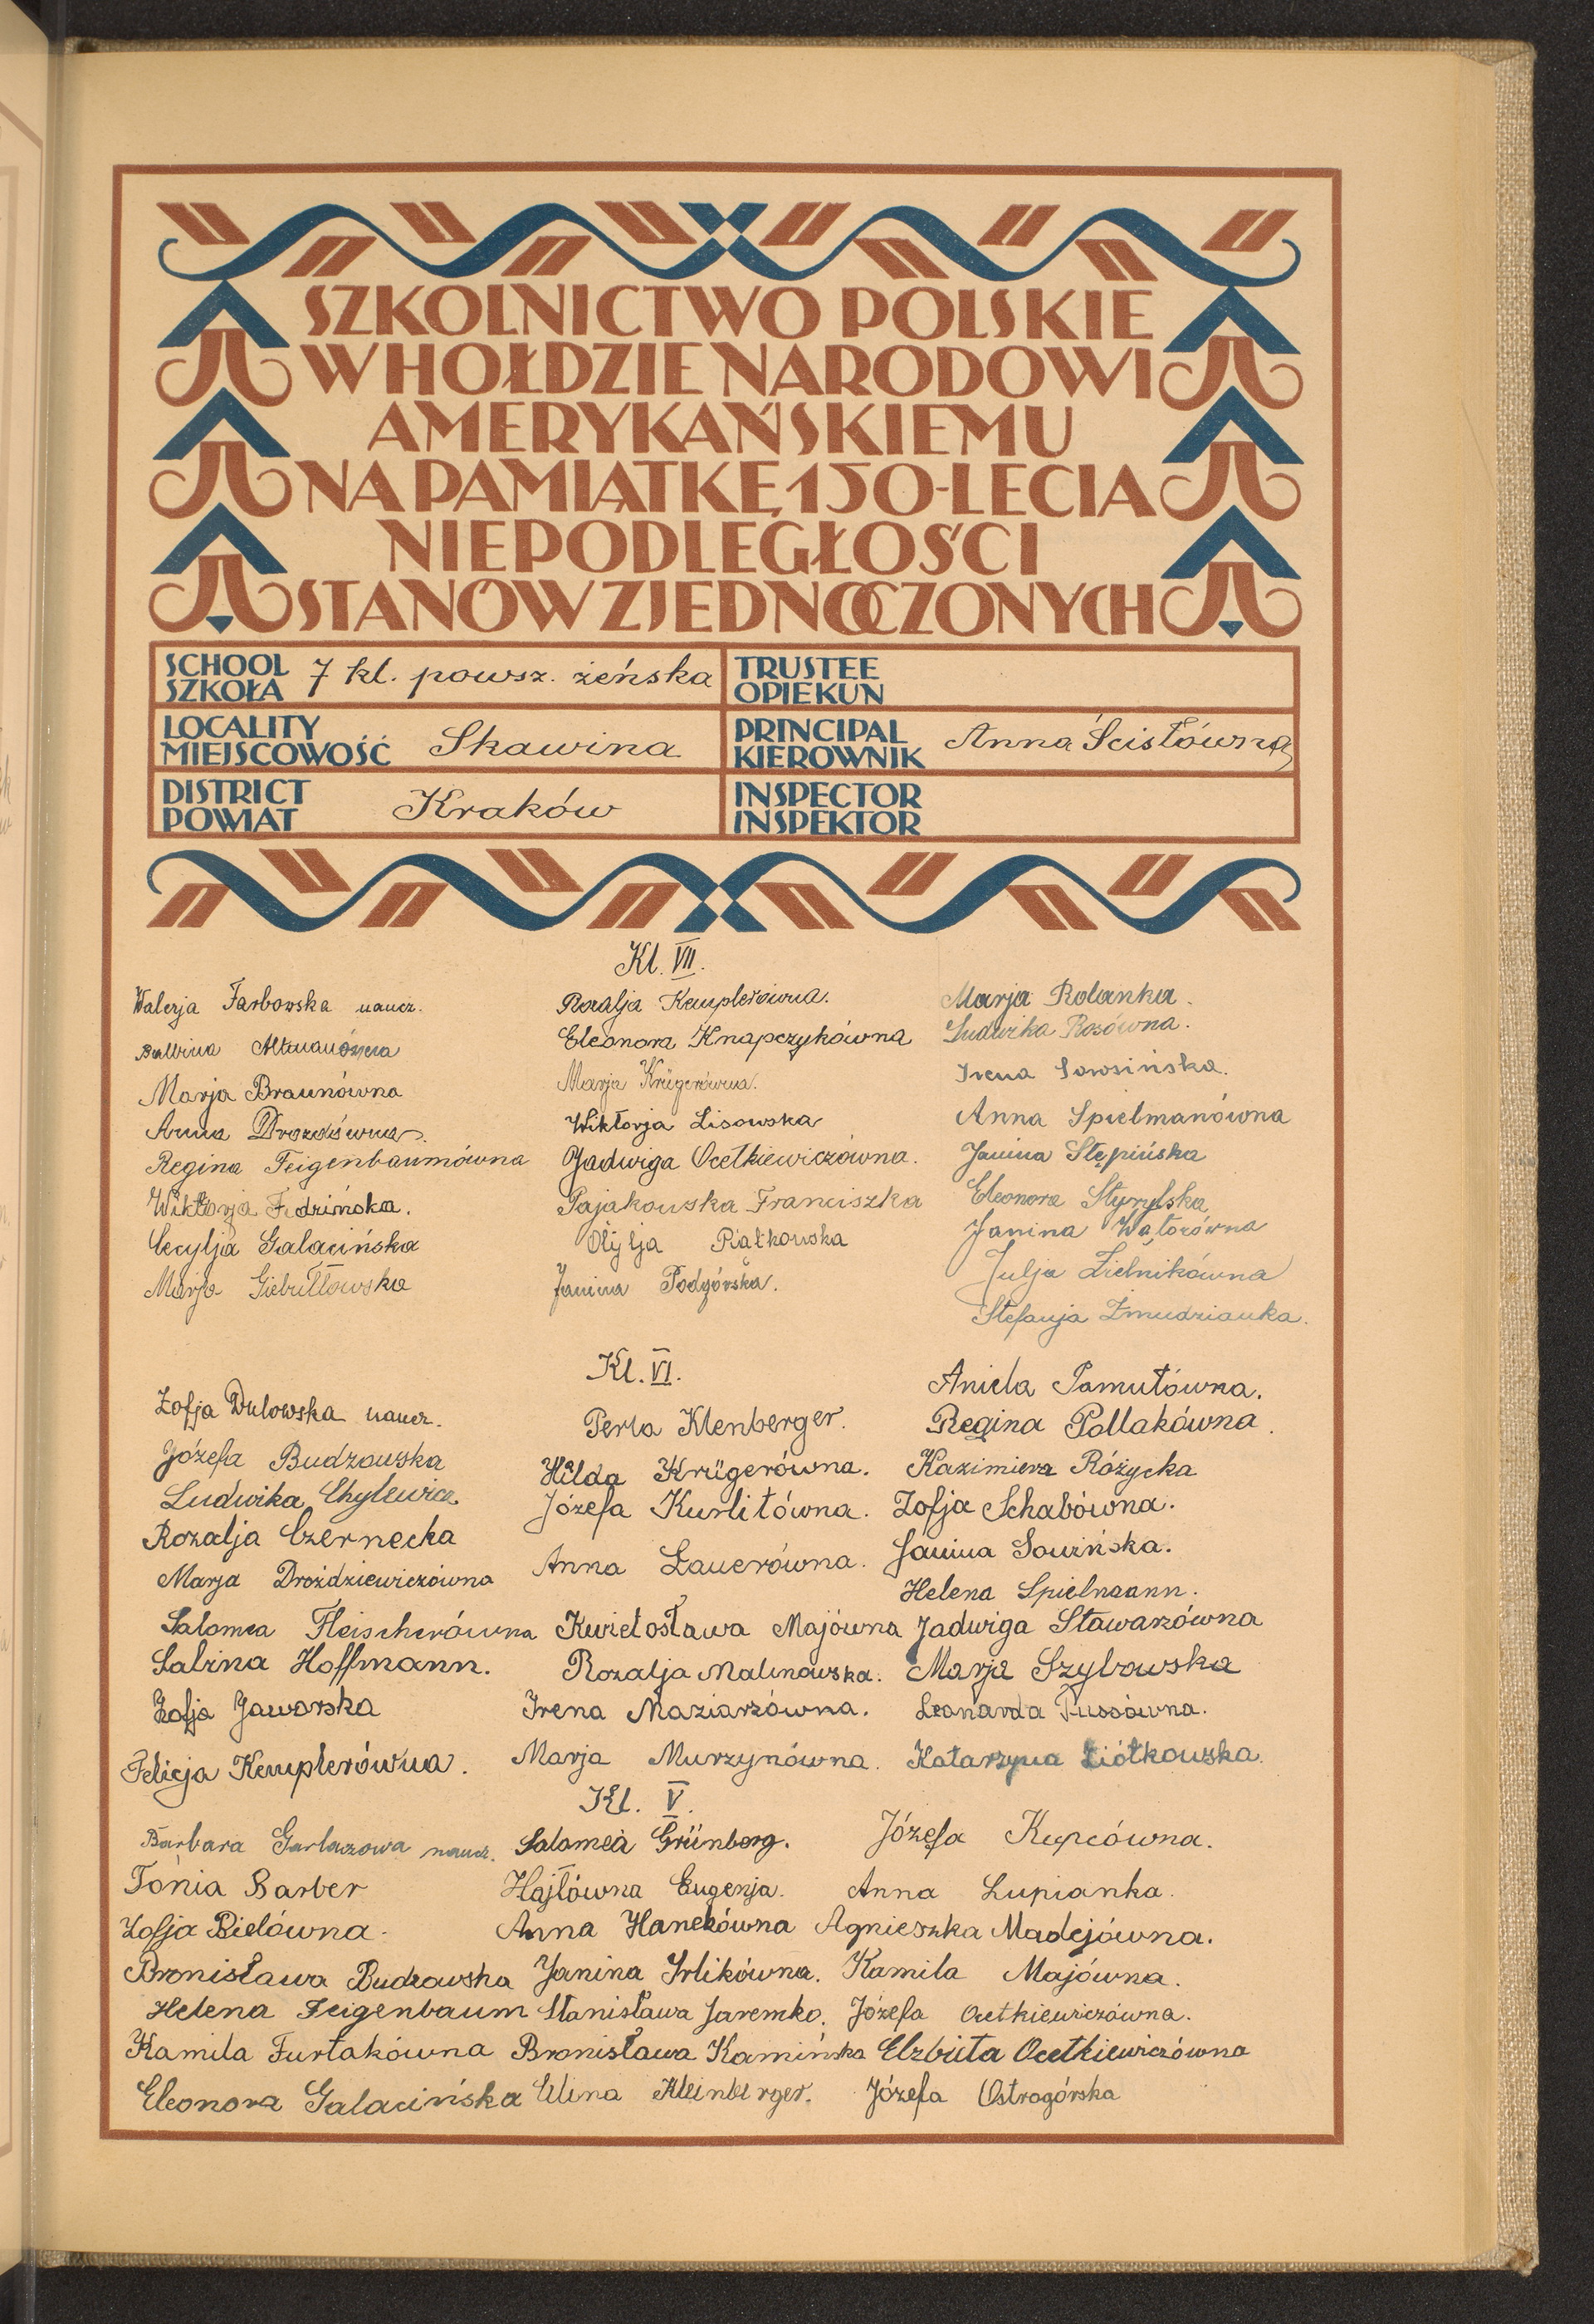 SZKOLNICTWO POLSKIE
W HOŁDZIE NARODOWI
AMERYKAŃSKIEMU
NA PAMIĄTKĘ 150-LECIA
NIEPODLEGŁOŚCI
STANÓW ZJEDNOCZONYCH
SCHOOL
SZKOŁA
7 kl. powsz. żeńska
TRUSTEE
OPIEKUN
LOCALITY
MIEJSCOWOŚĆ
Skawina
PRINCIPAL
KIEROWNIK
Anna Ścisłówna
DISTRICT
POWIAT
Kraków
INSPECTOR
INSPEKTOR
Kl. VII.
Walerja Farbowska naucz.
Balbina Altmanówna
Marja Braunówna
Anna Drozdówna.
Regina Feigenbaumówna
Wiktorja Fedzińska.
Cecylja Galacińska
Marja Giebułtowska
Rozalja Kemplerówna.
Eleonora Knapczykówna
Marja Krügerówna.
Wiktorja Lisowska
Jadwiga Ocetkiewiczówna.
Pająkowska Franciszka
Otylja Piątkowska
Janina Podgórska.
Marja Rolanka.
Ludwika Rosówna.
Irena Sowsińska.
Anna Spielmanówna
Janina Stępińska
Eleonora Styrylska
Janina Wątorówna
Julja Zielnikówna
Stefanja Żmudzianka.
Kl. VI.
Zofja Dulowska naucz.
Józefa Budzowska
Ludwika Chylewicz
Rozalja Czernecka
Marja Droździewiczówna
Salomea Fleischerówna
Sabina Hoffmann.
Zofja Jaworska
Felicja Kemplerówna.
Perla Klenberger.
Hilda Krügerówna.
Józefa Kurlitówna.
Anna Lauerówna.
Kwietosława Majówna
Rozalja Malinowska.
Irena Maziarzówna.
Marja Murzynówna.
Aniela Pamułówna.
Regina Pollakówna.
Kazimiera Różycka
Zofja Schabówna.
Janina Souzińska.
Helena Spielmann.
Jadwiga Stawarzówna
Marja Szybowska
Leonarda Tussówna.
Katarzyna Ziółkowska.
Kl. V.
Barbara Garlaczowa naucz.
Tonia Barber
Zofja Bielówna.
Bronisława Budzowska
Helena Feigenbaum
Kamila Furtakówna
Eleonora Galacińska
Salomea Grünberg.
Hajtówna Eugenja.
Anna Hanekówna
Janina Irlikówna.
Stanisława Jaremko.
Bronisława Kamińska
Elina Kleinberger.
Józefa Kupcówna.
Anna Łupianka.
Agnieszka Madejówna.
Kamila Majówna.
Józefa Ocetkiewiczówna.
Elzbieta Ocetkiewiczówna
Józefa Ostrogórska